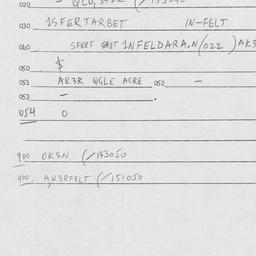 020 - QLD, (/155040
030 1SFERTARBET IN-FELT
040 SFERT 1NFELDARA.N(022 )AK3
050 $
051 AK3R QGLE ACRE 052 -
053 - .
054 0
900 OKSN (/143050
900, AK3RFELT (/151050